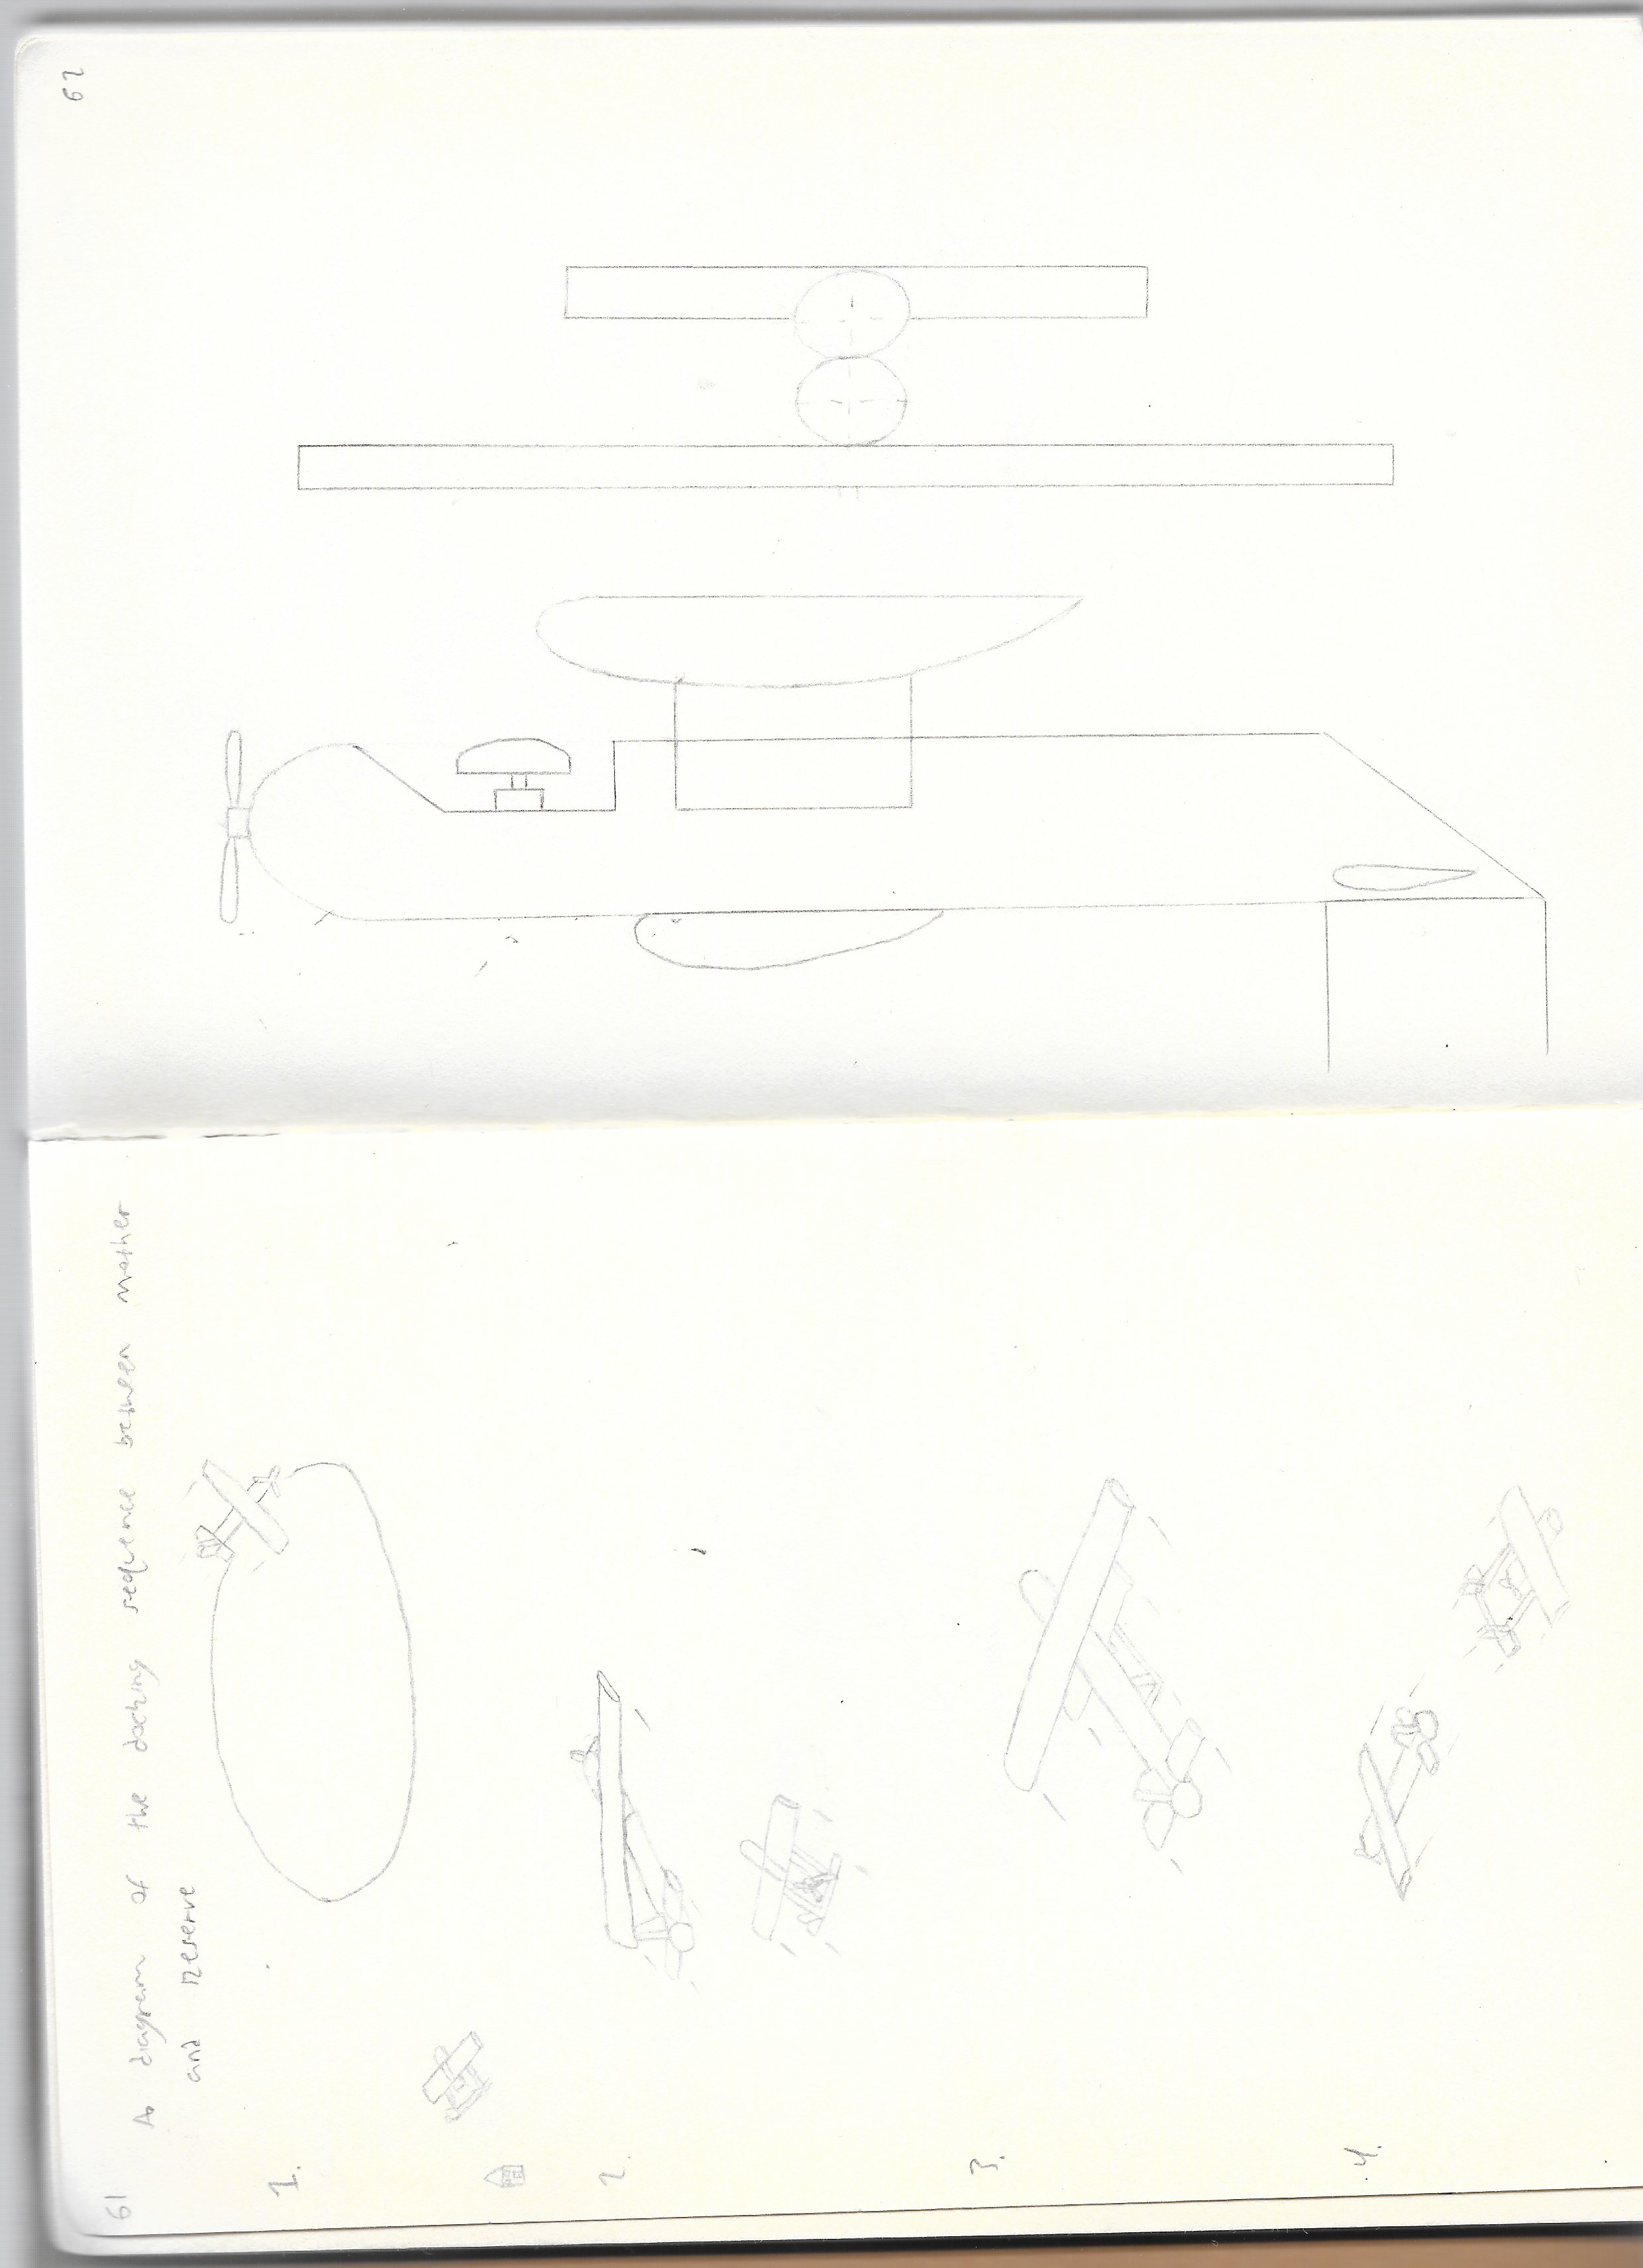 61
A diagram of the docking sequence between mother
and reserve
1.
2.
3.
4.
62